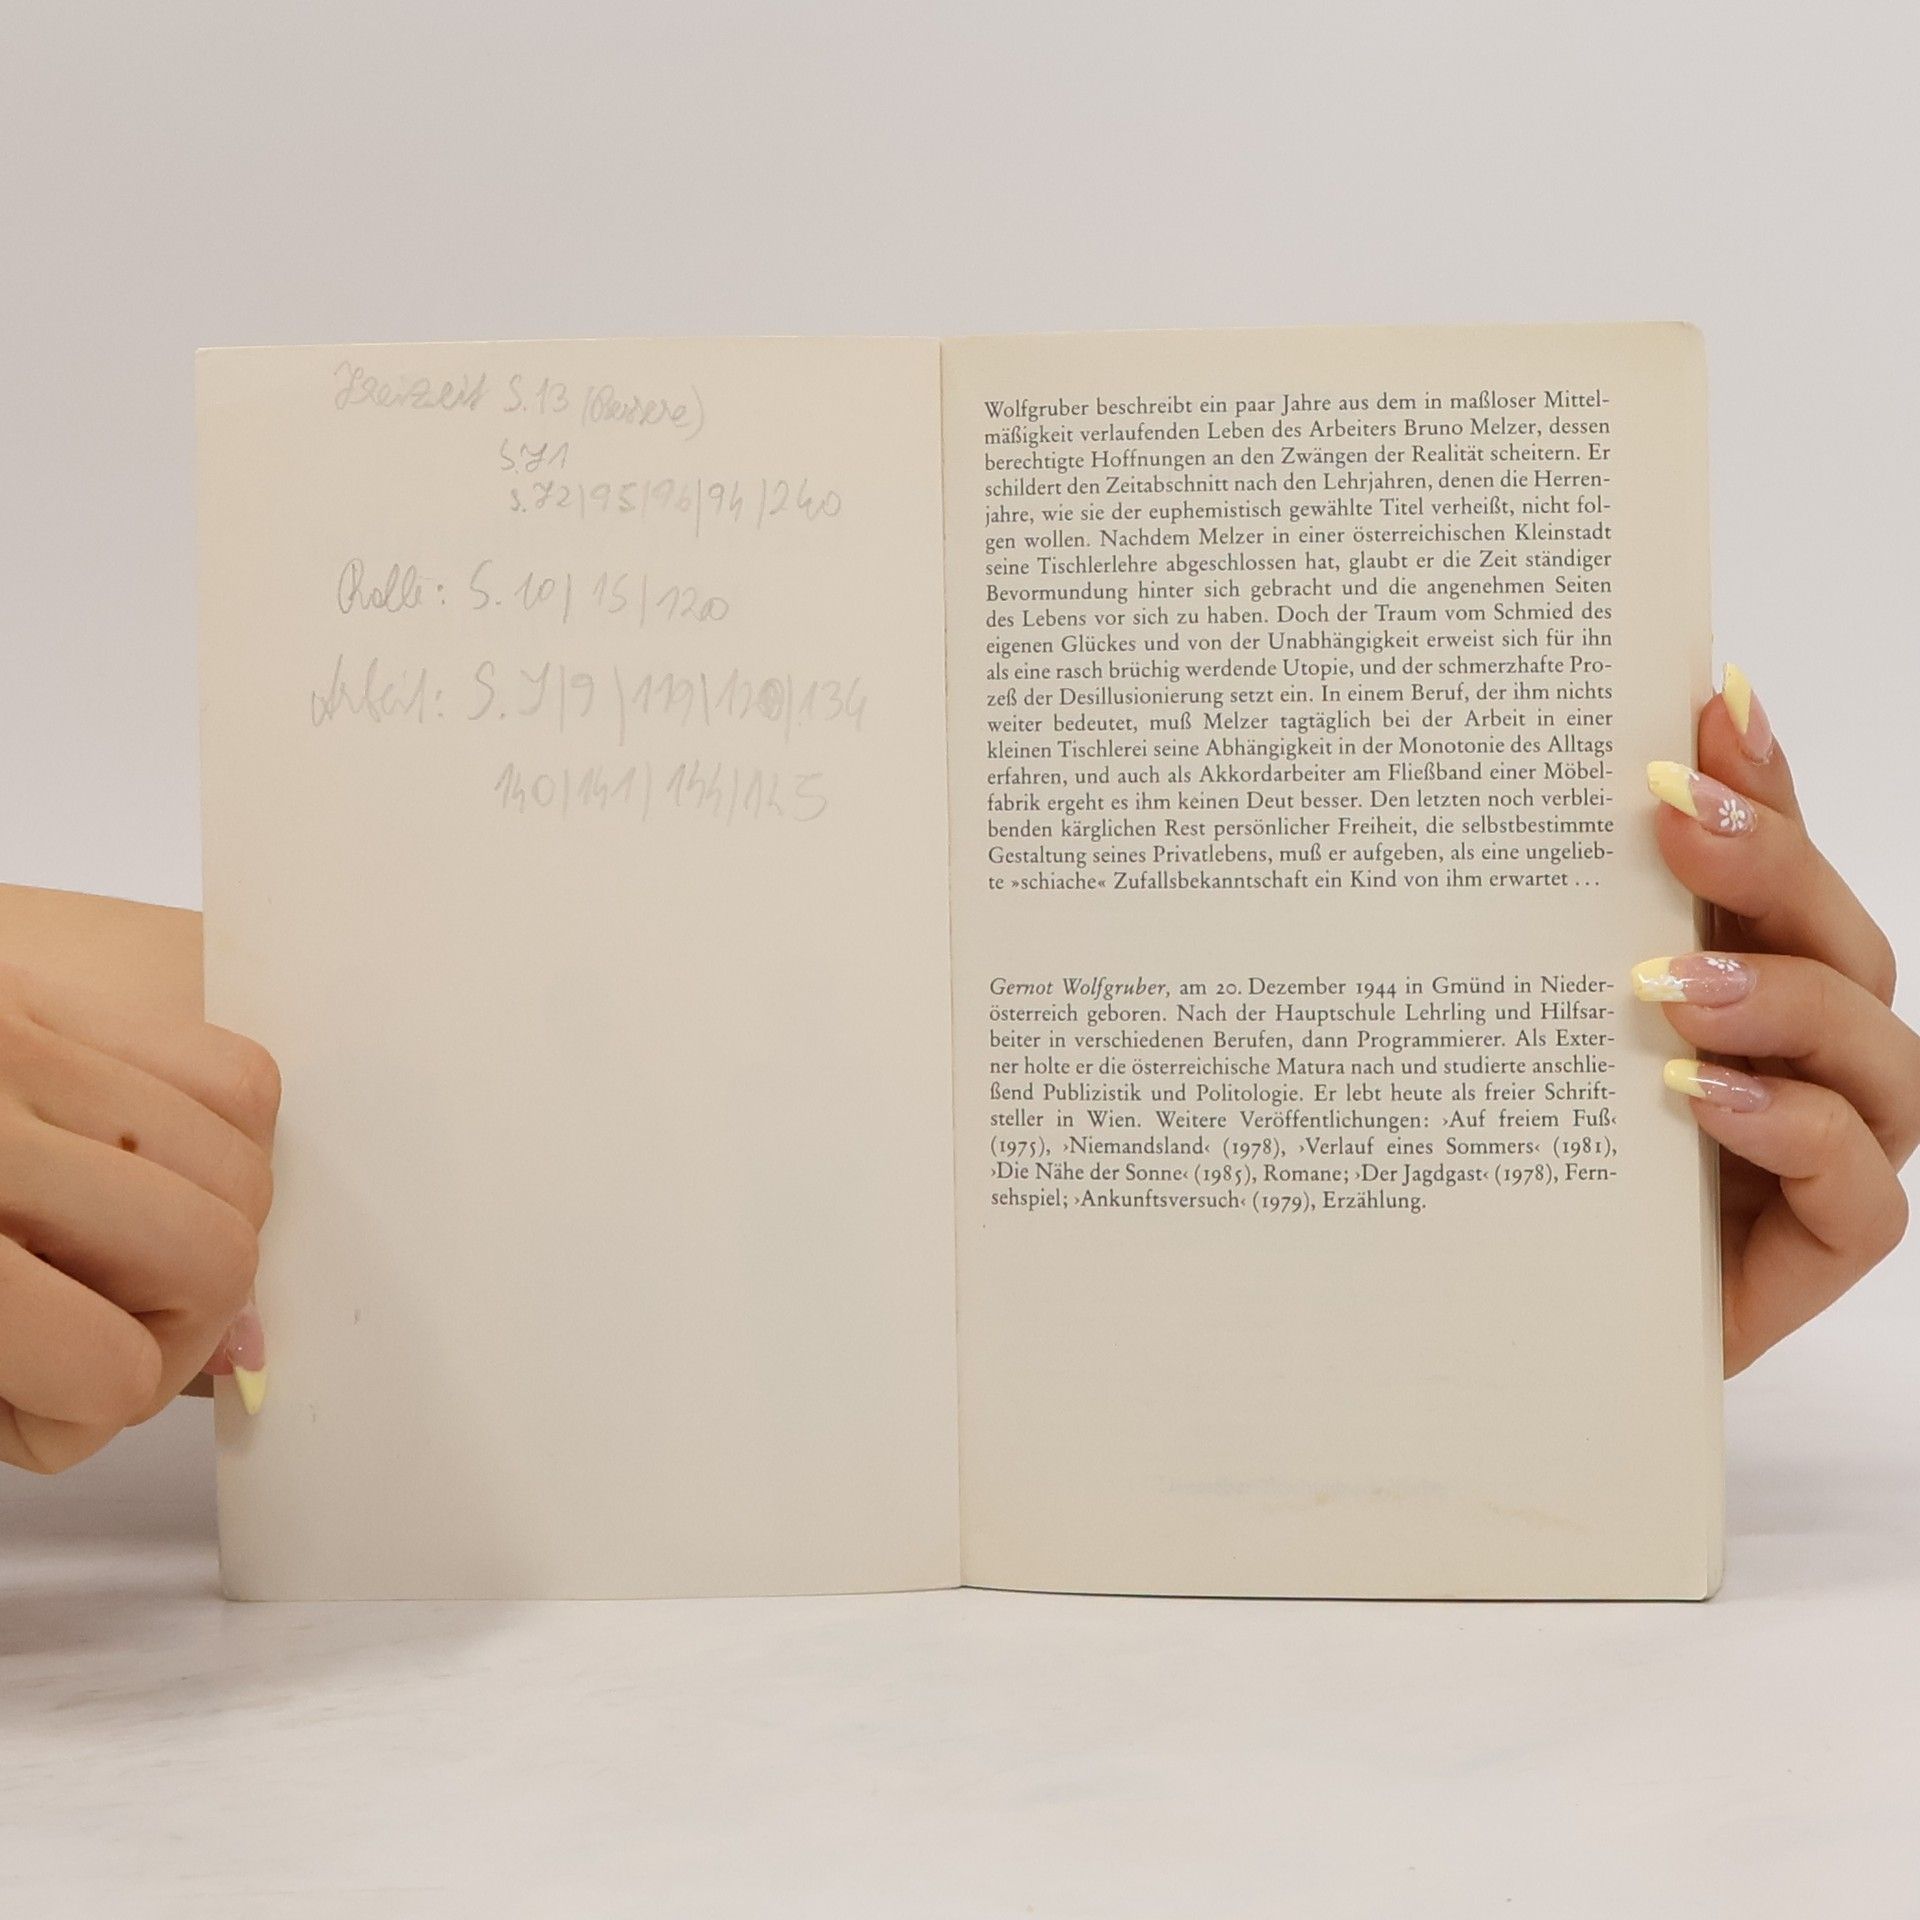 Freizeit S. 13
S. 71
S. 72|95|96|94|240
Rolle: S. 10|15|120
Arbeit: S. 7|9|119|120|134
140|141|144|145
Wolfgruber beschreibt ein paar Jahre aus dem in maßloser Mittel-
mäßigkeit verlaufenden Leben des Arbeiters Bruno Melzer, dessen
berechtigte Hoffnungen an den Zwängen der Realität scheitern. Er
schildert den Zeitabschnitt nach den Lehrjahren, denen die Herren-
jahre, wie sie der euphemistisch gewählte Titel verheißt, nicht fol-
gen wollen. Nachdem Melzer in einer österreichischen Kleinstadt
seine Tischlerlehre abgeschlossen hat, glaubt er die Zeit ständiger
Bevormundung hinter sich gebracht und die angenehmen Seiten
des Lebens vor sich zu haben. Doch der Traum vom Schmied des
eigenen Glückes und von der Unabhängigkeit erweist sich für ihn
als eine rasch brüchig werdende Utopie, und der schmerzhafte Pro-
zeß der Desillusionierung setzt ein. In einem Beruf, der ihm nichts
weiter bedeutet, muß Melzer tagtäglich bei der Arbeit in einer
kleinen Tischlerei seine Abhängigkeit in der Monotonie des Alltags
erfahren, und auch als Akkordarbeiter am Fließband einer Möbel-
fabrik ergeht es ihm keinen Deut besser. Den letzten noch verblei-
benden kärglichen Rest persönlicher Freiheit, die selbstbestimmte
Gestaltung seines Privatlebens, muß er aufgeben, als eine ungelieb-
te »schiache« Zufallsbekanntschaft ein Kind von ihm erwartet ...
Gernot Wolfgruber, am 20. Dezember 1944 in Gmünd in Nieder-
österreich geboren. Nach der Hauptschule Lehrling und Hilfsar-
beiter in verschiedenen Berufen, dann Programmierer. Als Exter-
ner holte er die österreichische Matura nach und studierte anschlie-
ßend Publizistik und Politologie. Er lebt heute als freier Schrift-
steller in Wien. Weitere Veröffentlichungen: ›Auf freiem Fuß‹
(1975), ›Niemandsland‹ (1978), ›Verlauf eines Sommers‹ (1981),
›Die Nähe der Sonne‹ (1985), Romane; ›Der Jagdgast‹ (1978), Fern-
sehspiel; ›Ankunftsversuch‹ (1979), Erzählung.